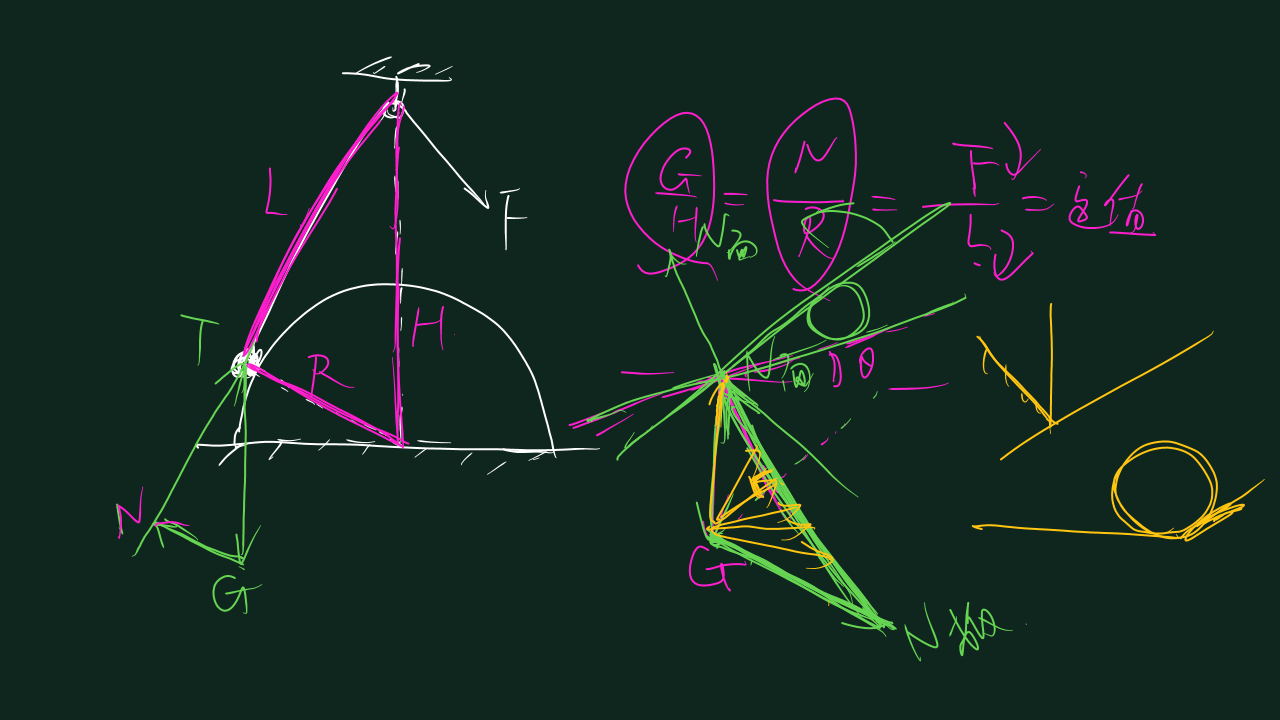 L
F
T
R
H
N
G
G/H = N/R = F/L = 定值
N面
N面
θ
G
N板